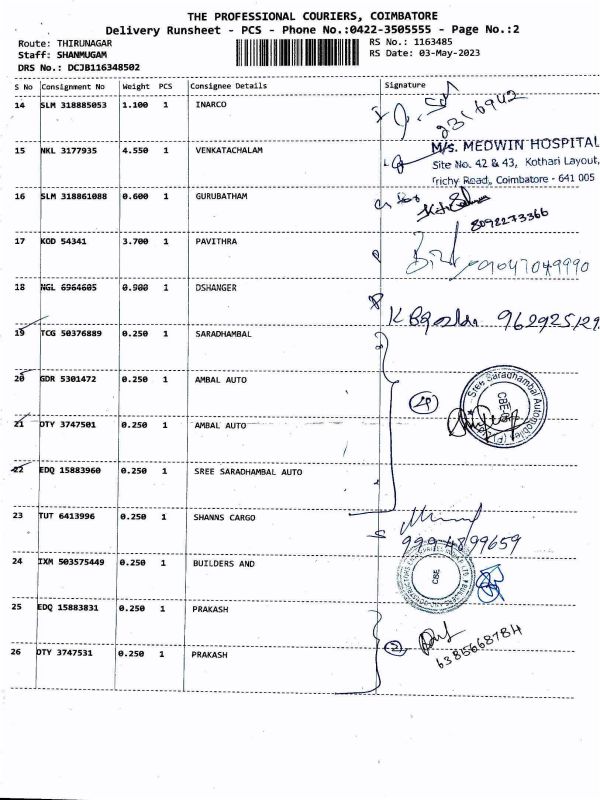 THE PROFESSIONAL COURIERS, COIMBATORE
Delivery Runsheet - PCS - Phone No.:0422-3505555 - Page No.:2
Route: THIRUNAGAR
Staff: SHANMUGAM
DRS No.: DCJB116348502
RS No.: 1163485
RS Date: 03-May-2023
S No Consignment No Weight PCS Consignee Details Signature
14 SLM 318885053 1.100 1 INARCO
15 NKL 3177935 4.550 1 VENKATACHALAM
M/s. MEDWIN HOSPITAL
Site No. 42 & 43, Kothari Layout,
Trichy Road, Coimbatore - 641 005
16 SLM 318861088 0.600 1 GURUBATHAM
8098273366
17 KOD 54341 3.700 1 PAVITHRA
9047049990
18 NGL 6964605 0.900 1 DSHANGER
19 TCG 50376889 0.250 1 SARADHAMBAL
20 GDR 5301472 0.250 1 AMBAL AUTO
Sree Saradhambal Automobiles (P)
CBE
21 OTY 3747501 0.250 1 AMBAL AUTO
22 EDQ 15883960 0.250 1 SREE SARADHAMBAL AUTO
23 TUT 6413996 0.250 1 SHANNS CARGO
9994899659
24 IXM 503575449 0.250 1 BUILDERS AND
CBE
25 EDQ 15883831 0.250 1 PRAKASH
2
26 OTY 3747531 0.250 1 PRAKASH